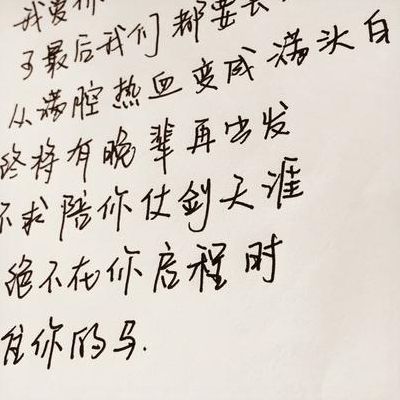 我爱你
了最后我们都要去
从满腔热血变成满头白
终将有晚辈再出发
不求陪你仗剑天涯
绝不在你启程时
住你的马.